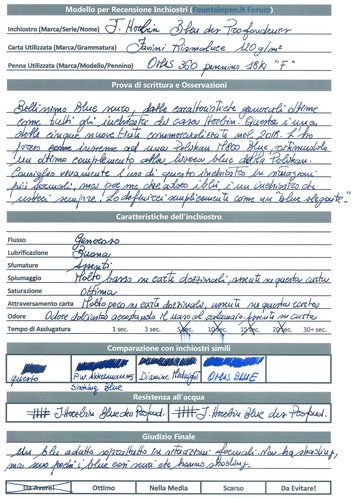 Modello per Recensione Inchiostri (Fountainpen.it Forum)
Inchiostro (Marca/Serie/Nome) J. Herbin Bleu des Profondeurs
Carta Utilizzata (Marca/Grammatura) Favini Rismaluce 120g/m²
Penna Utilizzata (Marca/Modello/Pennino) OMAS 360 pennino 18Kt "F"
Prova di scrittura e Osservazioni
Bellissimo Blue nero, dalle caratteristiche generali ottime
come tutti gli inchiostri di casa Herbin. Questa è una
delle cinque nuove tinte commercializzate nel 2018. L'ho
preso come insieme ad una Pelikan M800 Blue, ritenendolo
un ottimo complemento alla livrea blue della Pelikan.
Consiglio vivamente l'uso di questo inchiostro in situazioni
più formali, ma per me che adoro i blu è un inchiostro da
usarci sempre. Lo definirei semplicemente come un "Blue elegante".
Caratteristiche dell'inchiostro
Flusso Generoso
Lubrificazione Buona
Sfumature Assenti
Spiumaggio Molto basso su carte dozzinali, assente su questa carta
Saturazione Ottima
Attraversamento carta Molto poco su carte dozzinali, assente su questa carta
Odore Odore dolciastro accostando il naso al calamaio
Tempo di Asciugatura 1 sec. 3 sec. 5 sec. 10 sec. 15 sec. 20 sec. 30+ sec.
Comparazione con inchiostri simili
questo P.W. Akkermann #5 Diamine Midnight OMAS BLUE
Shocking Blue
Resistenza all'acqua
J. Herbin Bleu des Profond. J. Herbin Bleu des Profond.
Giudizio Finale
Un blu adatto soprattutto in situazioni formali. Non ha shading,
ma sono pochi i blue così scuri che hanno shading.
Da Avere! Ottimo Nella Media Scarso Da Evitare!